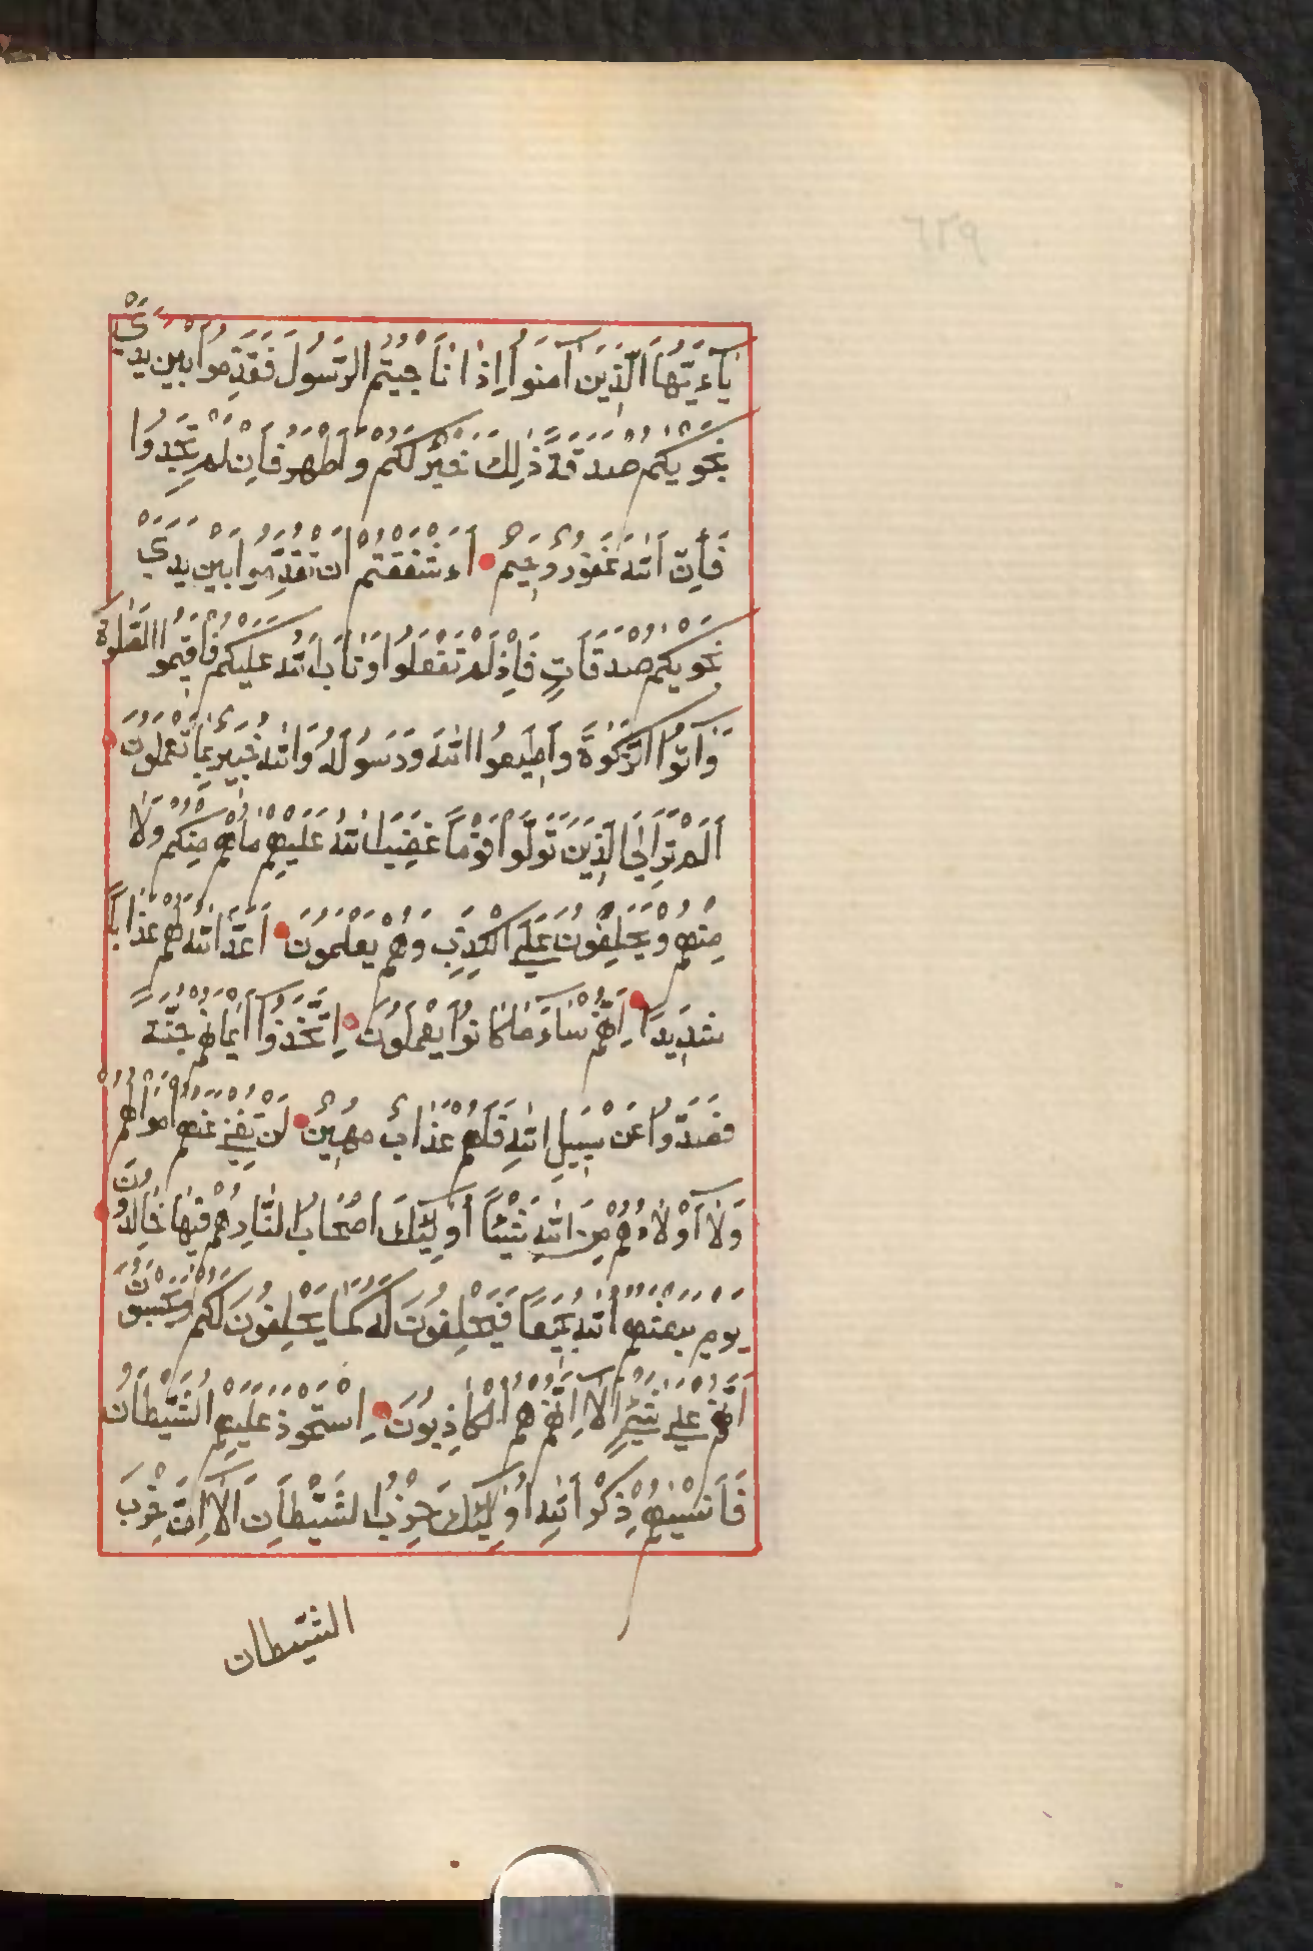 يَآءَيُّهَا الَّذِينَ آمَنُوا إِذَا نَاجَيْتُمُ الرَّسُولَ فَقَدِّمُوا بَيْنَ يَدَيْ
نَجْوَيكُمْ صَدَقَةً ذٰلِكَ خَيْرٌ لَكُمْ وَأَطْهَرُ فَإِنْ لَمْ تَجِدُوا
فَإِنَّ اللّٰهَ غَفُورٌ رَحِيمٌ ءَأَشْفَقْتُمْ أَنْ تُقَدِّمُوا بَيْنَ يَدَيْ
نَجْوَيكُمْ صَدَقَاتٍ فَإِذْ لَمْ تَفْعَلُوا وَتَابَ اللّٰهُ عَلَيْكُمْ فَأَقِيمُوا الصَّلٰوةَ
وَآتُوا الزَّكٰوةَ وَأَطِيعُوا اللّٰهَ وَرَسُولَهُ وَاللّٰهُ خَبِيرٌ بِمَا تَعْمَلُونَ
أَلَمْ تَرَ إِلَى الَّذِينَ تَوَلَّوْا قَوْمًا غَضِبَ اللّٰهُ عَلَيْهِمْ مَا هُمْ مِنْكُمْ وَلَا
مِنْهُمْ وَيَحْلِفُونَ عَلَى الْكَذِبِ وَهُمْ يَعْلَمُونَ أَعَدَّ اللّٰهُ لَهُمْ عَذَابًا
شَدِيدًا إِنَّهُمْ سَآءَ مَا كَانُوا يَعْمَلُونَ اِتَّخَذُوا أَيْمَانَهُمْ جُنَّةً
فَصَدُّوا عَنْ سَبِيلِ اللّٰهِ فَلَهُمْ عَذَابٌ مُهِينٌ لَنْ تُغْنِيَ عَنْهُمْ أَمْوَالُهُمْ
وَلَا أَوْلَادُهُمْ مِنَ اللّٰهِ شَيْئًا أُولٰٓئِكَ أَصْحَابُ النَّارِ هُمْ فِيهَا خَالِدُونَ
يَوْمَ يَبْعَثُهُمُ اللّٰهُ جَمِيعًا فَيَحْلِفُونَ لَهُ كَمَا يَحْلِفُونَ لَكُمْ وَيَحْسَبُونَ
أَنَّهُمْ عَلٰى شَيْءٍ أَلَا إِنَّهُمْ هُمُ الْكَاذِبُونَ اِسْتَحْوَذَ عَلَيْهِمُ الشَّيْطَانُ
فَأَنْسٰيهُمْ ذِكْرَ اللّٰهِ أُولٰٓئِكَ حِزْبُ الشَّيْطَانِ أَلَا إِنَّ حِزْبَ
الشيطان